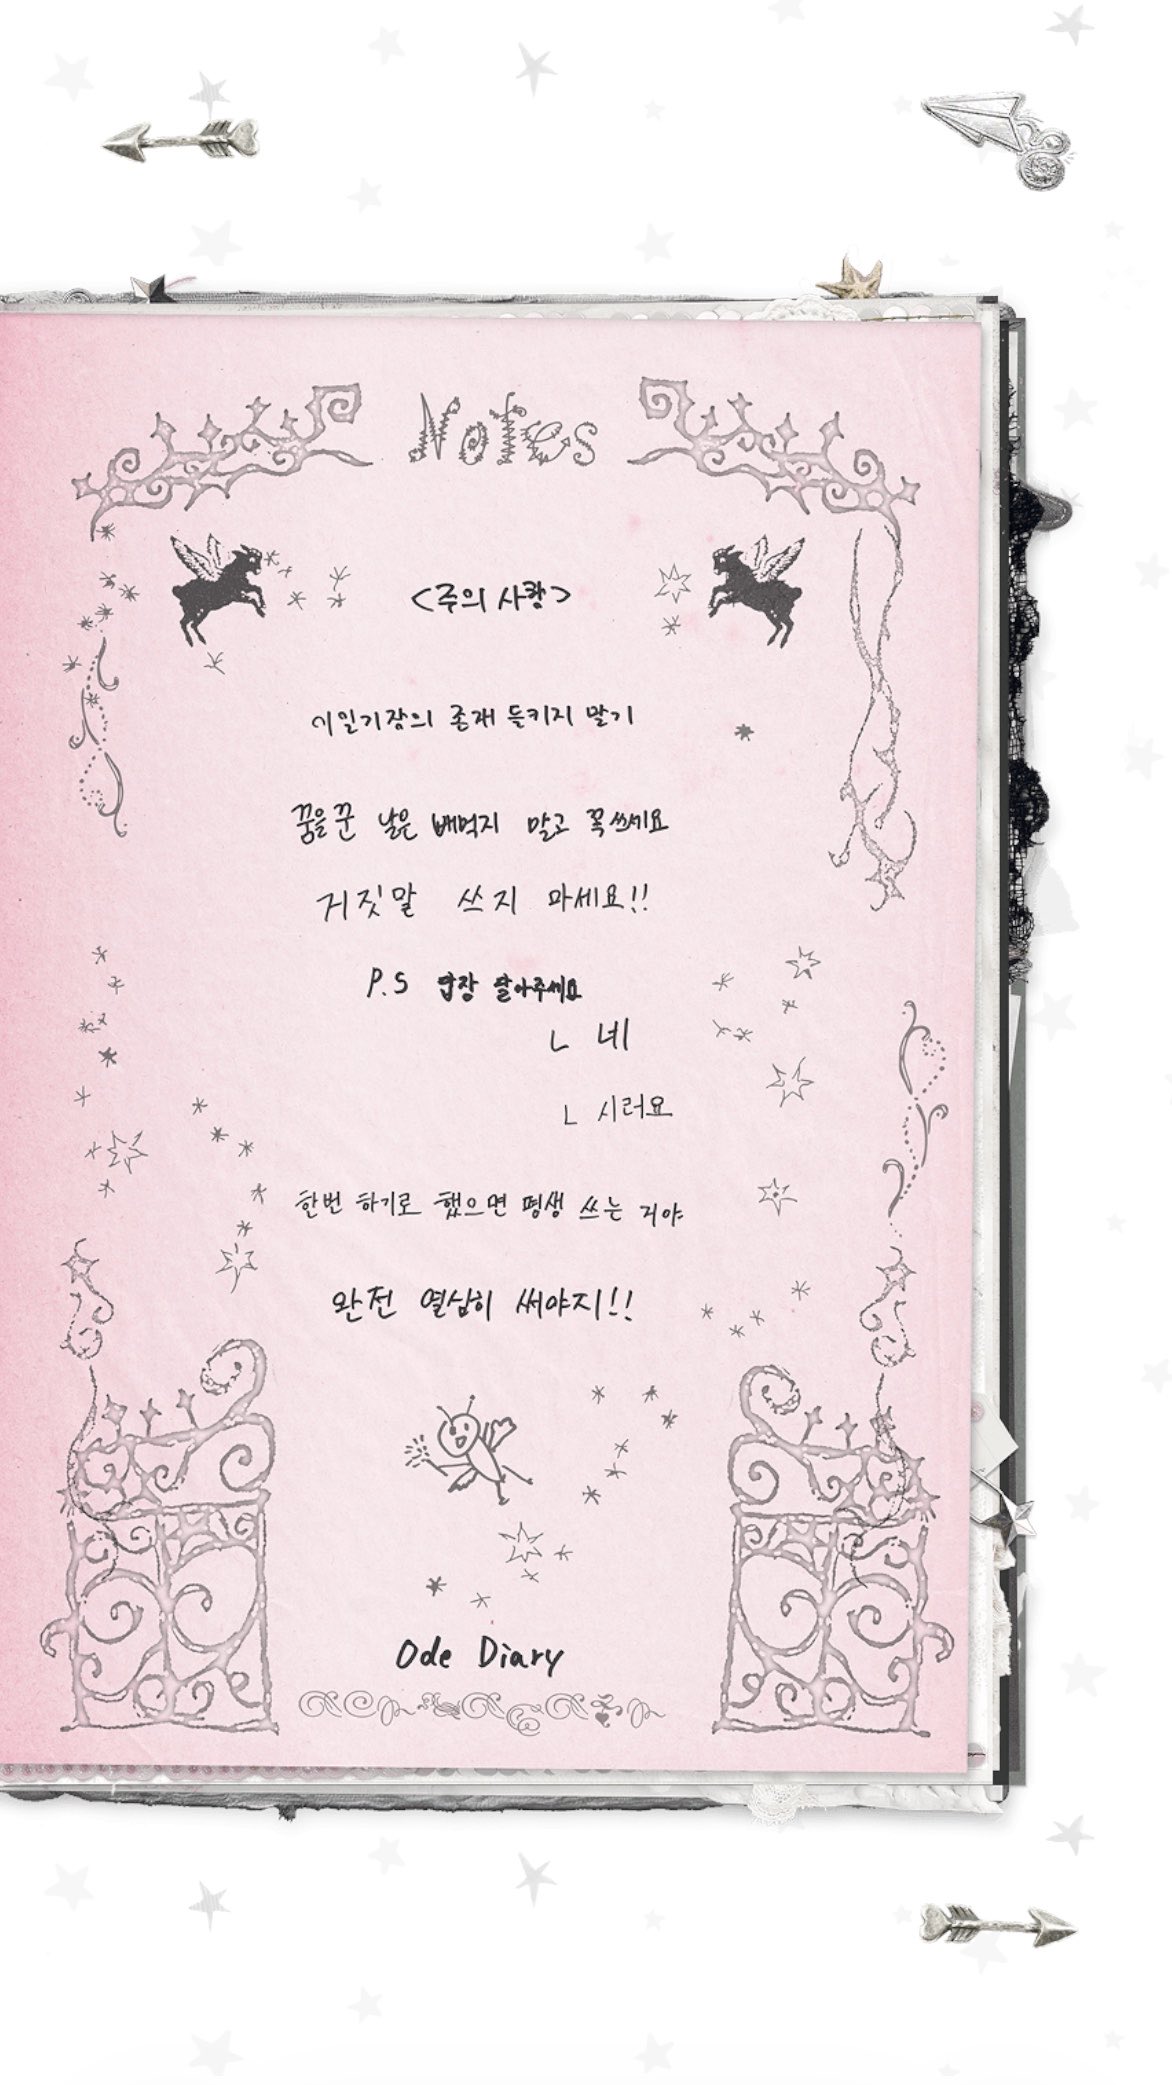 Notes
<주의 사항>
이 일기장의 존재 들키지 말기
꿈을 꾼 날은 빼먹지 말고 꼭 쓰세요
거짓말 쓰지 마세요!!
P.S 답장 달아주세요
ㄴ 네
ㄴ 시러요
한번 하기로 했으면 평생 쓰는 거야
완전 열심히 써야지!!
Ode Diary